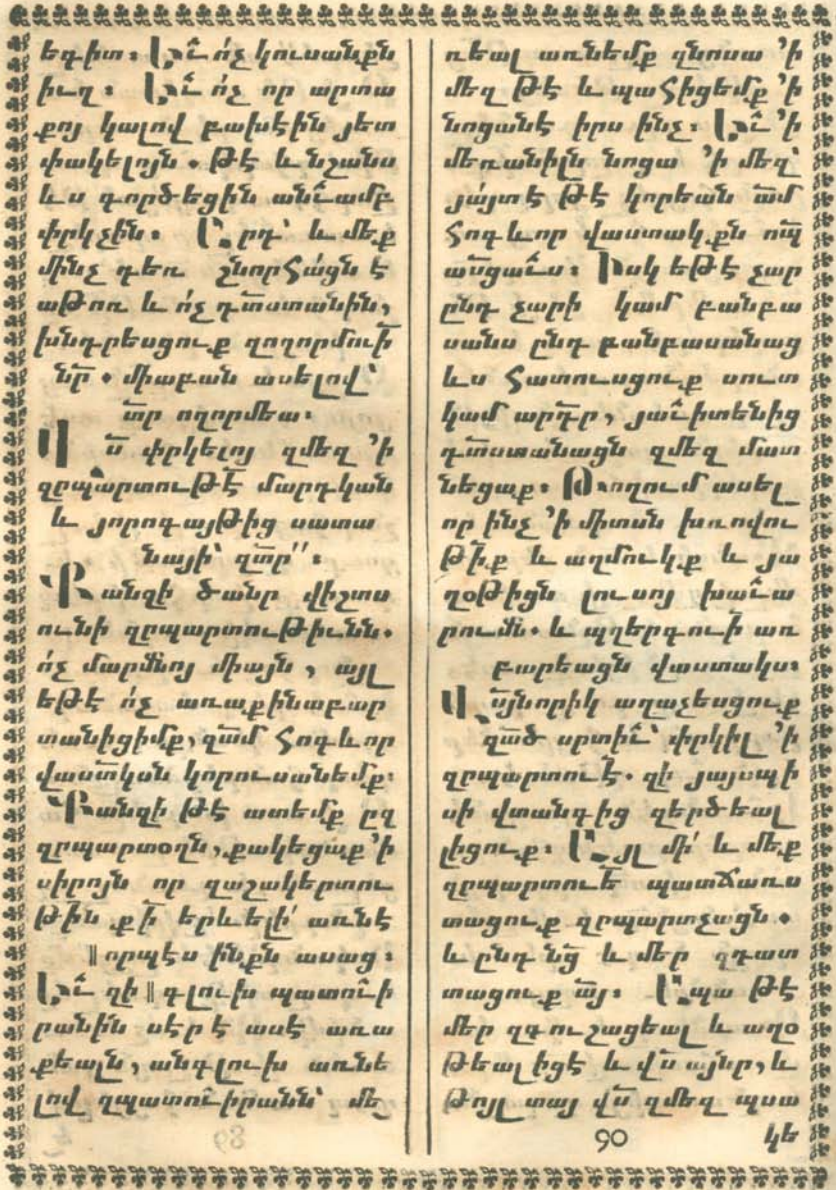 եգիտ։ Եւ ոչ կուսանքն
իւղ։ Եւ ոչ որ արտա
քոյ կալով բախէին յետ
փակելոյն․ թէ և նշանս
ևս գործեցին անուամբ
փրկչին։ Արդ՝ և մեք
մինչ դեռ շնորհացն է
աթոռ և ոչ դատաստանին,
խնդրեսցուք զողորմուի
նր̅․ միաբան ասելով՝
տր̅ ողորմեա։
Վս̅ փրկելոյ զմեզ ՚ի
զրպարտութե̅ մարդկան
և յորոգայթից սատա
նայի՝ զտր̅՛՛։
Քանզի ծանր վիշտս
ունի զրպարտութիւնն․
ոչ մարմնոյ միայն, այլ
եթէ ոչ առաքինաբար
տանիցիմք, զամ̅ հոգևոր
վաստկսն կորուսանեմք։
Քանզի թէ ատեմք ըզ
զրպարտօղն, քակեցաք ՚ի
սիրոյն որ զաշակերտու
թին̅ քի̅ երևելի՛ առնէ
‖որպէս ինքն ասաց։
Եւ զի‖գլուխ պատուի
րանին սէր է ասէ առա
քեալն, անգլուխ առնե
լով զպատուիրանն՝ մե
ռեալ առնեմք զնոսա ՚ի
մեզ թէ և պահիցեմք ՚ի
նոցանէ իրս ինչ։ Եւ ՚ի
մեռանիլն նոցա ՚ի մեզ՝
յայտ է թէ կորեան ամ̅
հոգևոր վաստակքն որպ̅
անցաւս։ Իսկ եթէ չար
ընդ չարի կամ բանբա
սանս ընդ բանբասանաց
ևս հատուսցուք սուտ
կամ արդր̅, յաւիտենից
դատաստանացն զմեզ մատ
նեցաք։ Թողում ասել
որ ինչ ՚ի միտսն խռովու
թի̅ք և աղմուկք և յա
ղօթիցն լուսոյ խաւա
րումն․ և պղերգուի̅ առ
բարեացն վաստակս։
Վս̅յնորիկ աղաչեսցուք
զած̅ սրտիւ՝ փրկիլ ՚ի
զրպարտուէ̅․ զի յայսպի
սի վտանգից զերծեալ
լիցուք։ Այլ մի՛ և մեք
զրպարտուե̅ պատճառս
տացուք զրպարտչացն․
և ընդ նց̅ և մեր զդատ
տացուք այ̅։ Ապա թէ
մեր զգուշացեալ և աղօ
թեալ իցէ և վս̅ այնր, և
թոյլ տայ վս̅ զմեզ պսա
90 կե